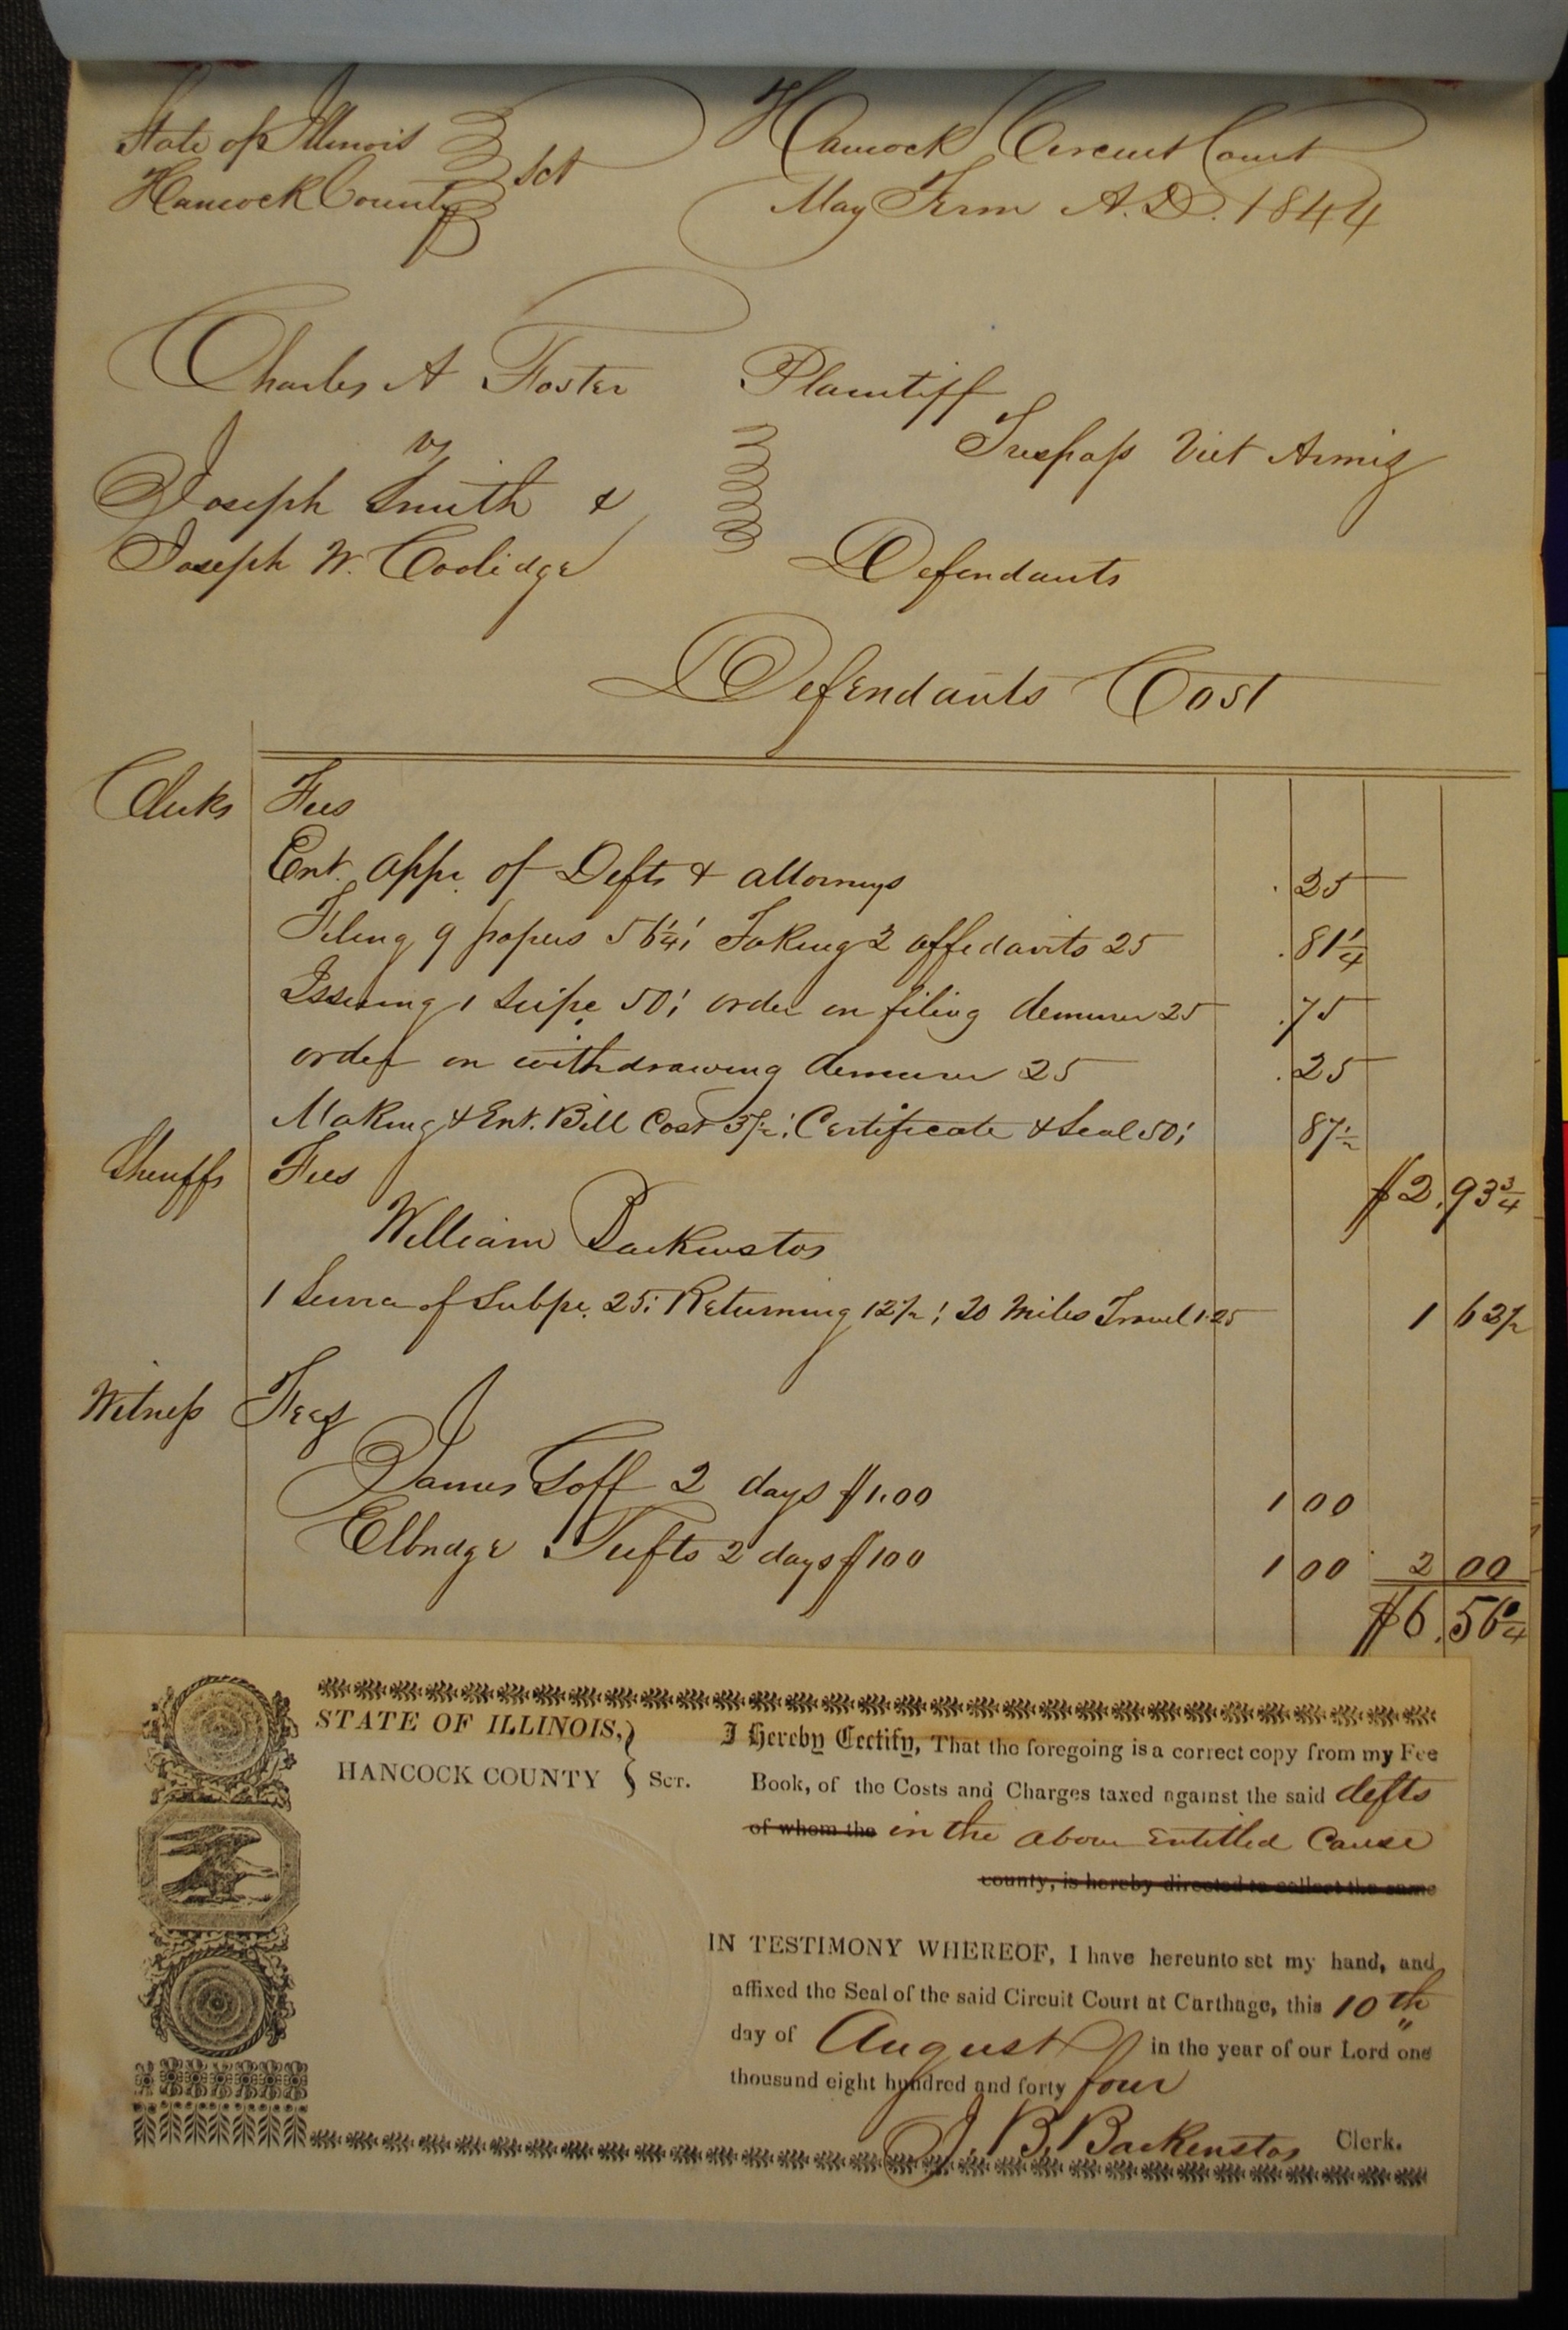 State of Illinois
Hancock County
Sct
Hancock Circuit Court
May Term A.D. 1844
Charles A Foster
Plaintiff
vs
Trespass Viet Armis
Joseph Smith &
Joseph W. Coolidge
Defendants
Defendants Cost
Clerks Fees
Ent. appe. of Defts & attorneys . 25
Filing 9 papers 56¼; Taking 2 affidavits 25 . 81¼
Issuing 1 Suipe 50; order on filing demurer 25 . 75
order on withdrawing demurer 25 . 25
Making & Ent. Bill Cost 37½; Certificate & Seal 50; 87½
$2.93¾
Sheriffs Fees
William Backenstos
1 Service of Subpe. 25; Returning 12½; 20 Miles Travel 1.25 1 62½
Witness Fees
James Goff 2 days $1.00 1 00
Elbridge Tufts 2 days $1 00 1 00 2 00
$6.56¼
STATE OF ILLINOIS,
HANCOCK COUNTY
Sct.
I Hereby Certify, That the foregoing is a correct copy from my Fee
Book, of the Costs and Charges taxed against the said defts
of whom the in the above entitled Cause
county, is hereby directed to collect the same
IN TESTIMONY WHEREOF, I have hereunto set my hand, and
affixed the Seal of the said Circuit Court at Carthage, this 10th
day of August in the year of our Lord one
thousand eight hundred and forty four
J. B. Backenstos Clerk.